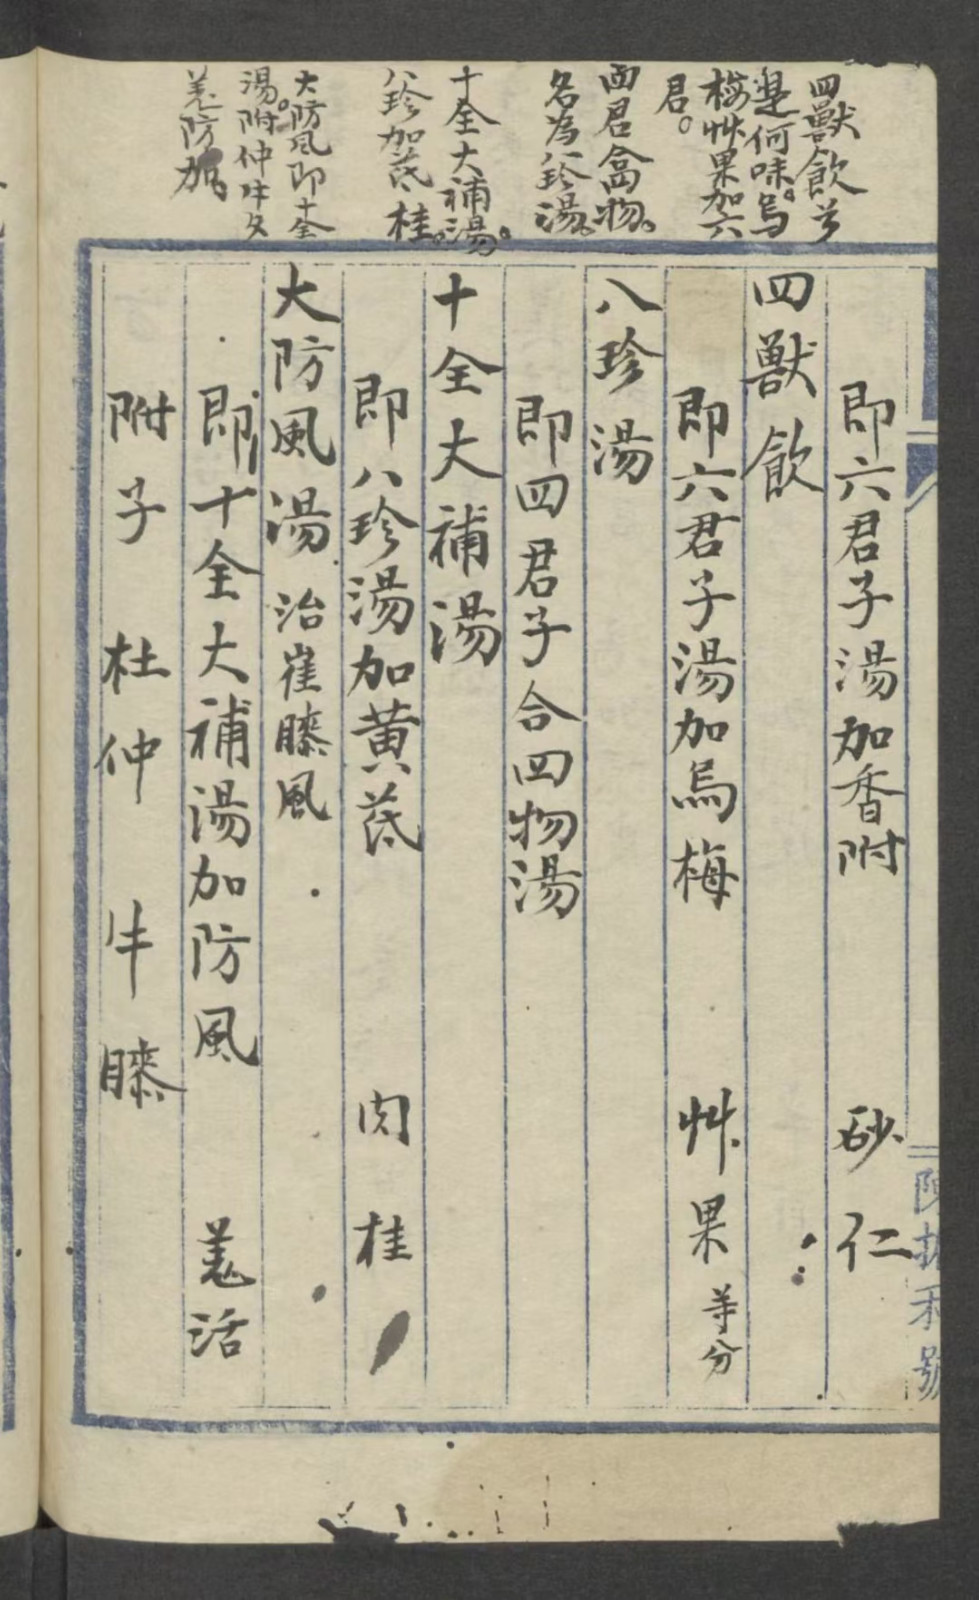 四獸飲兮
是何味。烏
梅艸果加六
君。
四君合四物。
名為八珍湯。
十全大補湯。
八珍加芪桂。
大防風即十全
湯。附仲牛夕
羗防加。
即六君子湯加香附 砂仁
四獸飲
即六君子湯加烏梅 艸果等分
八珍湯
即四君子合四物湯
十全大補湯
即八珍湯加黄芪 肉桂
大防風湯 治崔膝風
即十全大補湯加防風 羗活
附子 杜仲 牛膝